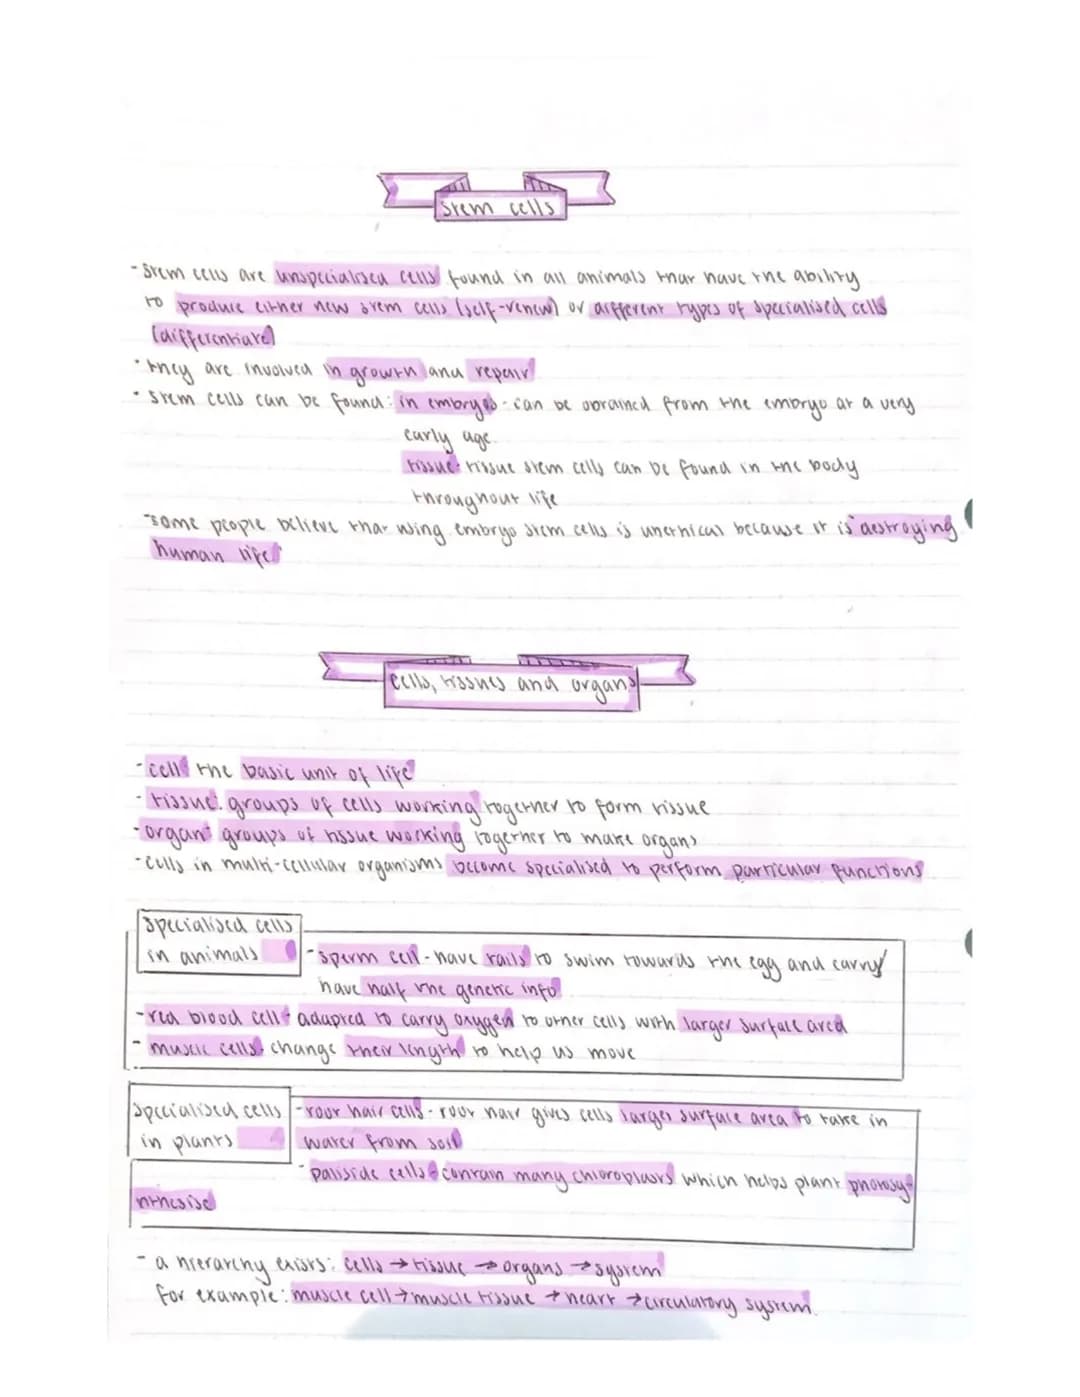 Stem cells
- Stem cells are unspecialised cells found in all animals that have the ability
to produce either new stem cells (self-renew) or different types of specialised cells
(differentiate)
• they are involved in growth and repair
• Stem cells can be found: in embryos - can be obtained from the embryo at a very
early age.
tissue: tissue stem cells can be found in the body
throughout life
- some people believe that using embryo stem cells is unethical because it is "destroying
human life"
Cells, tissues and organs
- cell: the basic unit of life
- tissue: groups of cells working together to form tissue
- organ: groups of tissue working together to make organs
- cells in multi-cellular organisms become specialised to perform particular functions
Specialised cells
in animals
- sperm cell - have tails to swim towards the egg and carry/
have half the genetic info
- red blood cell - adapted to carry oxygen to other cells with larger surface area
- muscle cells - change their length to help us move
Specialised cells
in plants
- root hair cells - root hair gives cells larger surface area to take in
water from soil
- paliside cells - contain many chloroplasts which helps plant photosy-
nthesise
- a hierarchy exists: cells → tissue → organs → system
for example: muscle cell → muscle tissue → heart → circulatory system.